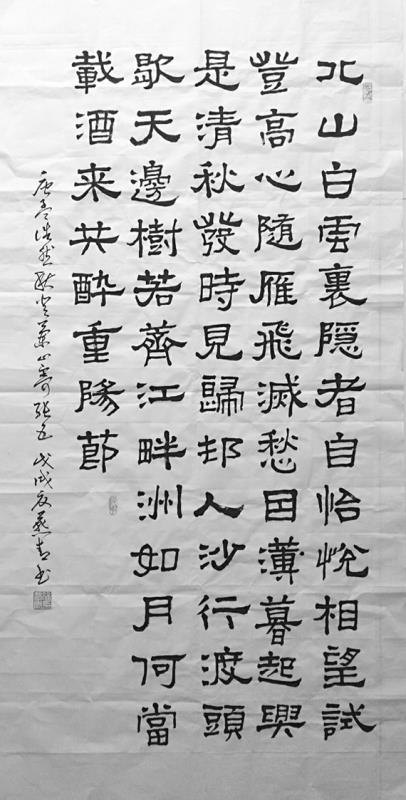 北山白雲裏隱者自怡悅相望試
登高心隨雁飛滅愁因薄暮起興
是清秋發時見歸邨人沙行渡頭
歇天邊樹若薺江畔洲如月何當
載酒来共醉重陽節
唐孟浩然秋登萬山寄張五 戊戌夏燕青书